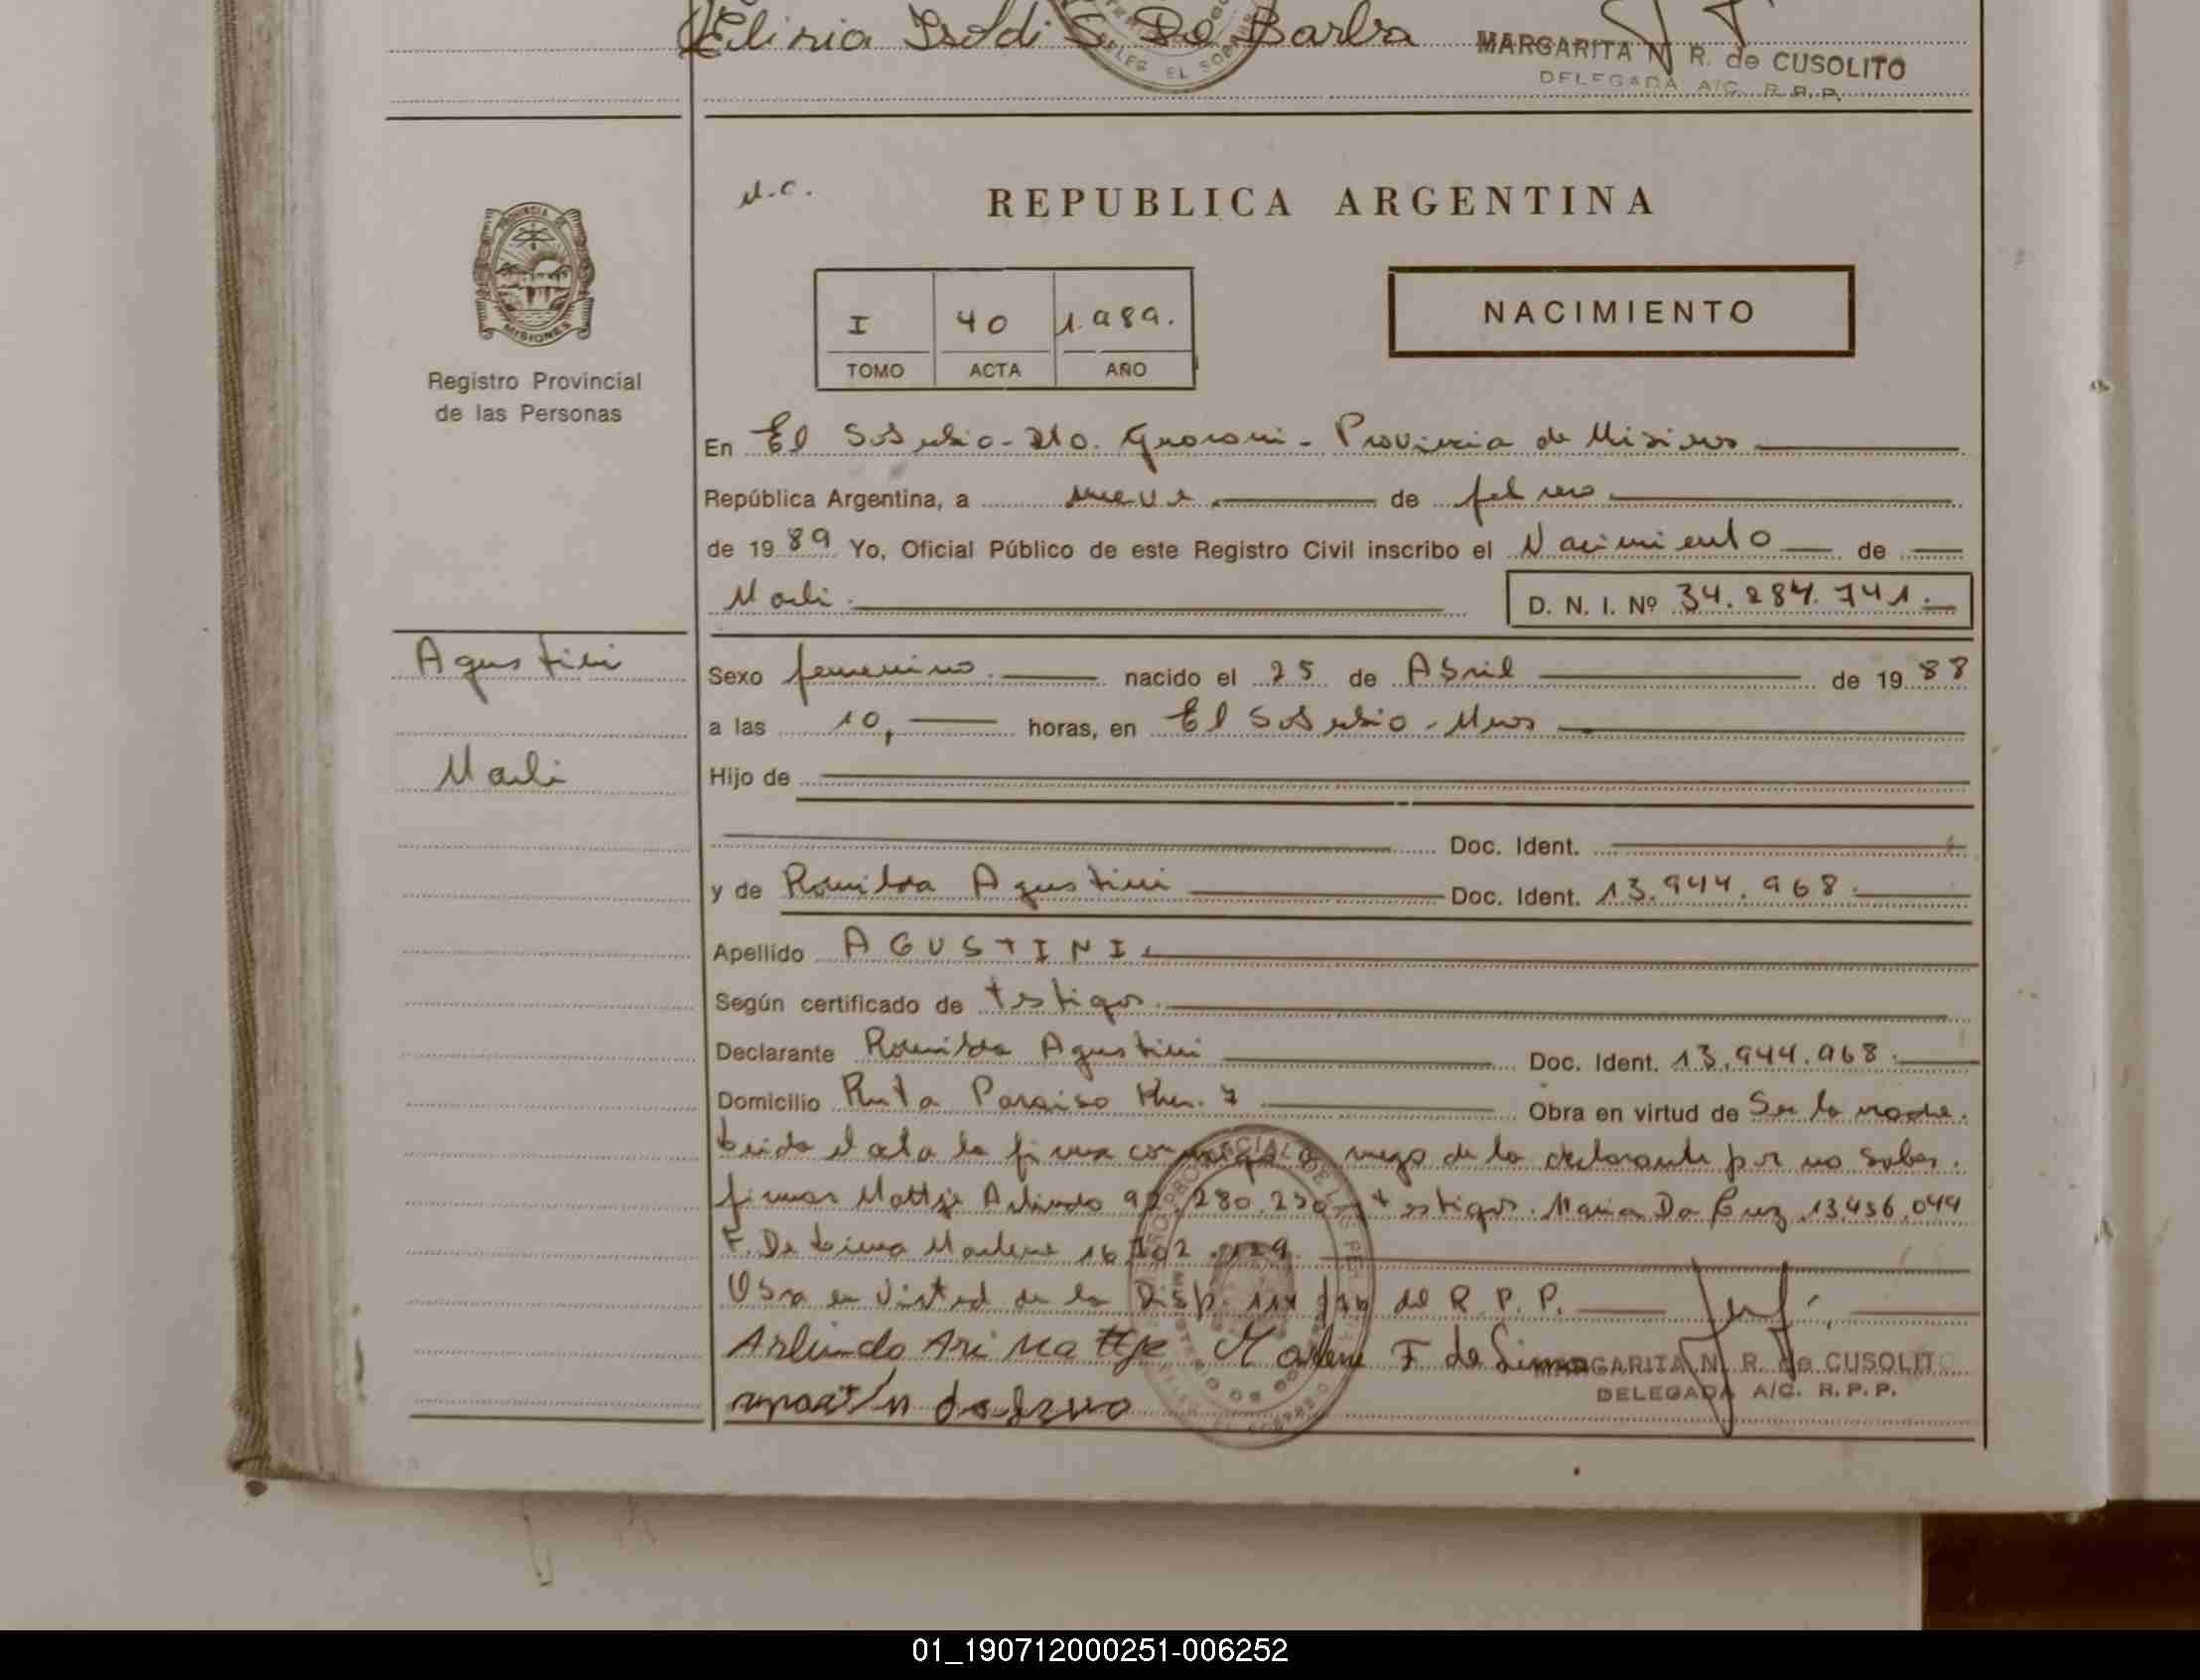 Elisia Isoldi S. De Barba
MARGARITA N. R. de CUSOLITO
DELEGADA A/C. R. P. P.
EL SOBERBIO
N.C.
REPUBLICA ARGENTINA
PROVINCIA DE
MISIONES
Registro Provincial
de las Personas
I 40 1.989.
TOMO ACTA AÑO
NACIMIENTO
En El Soberbio - Dto. Guarani - Provincia de Misiones
República Argentina, a nueve de febrero
de 19 89 Yo, Oficial Público de este Registro Civil inscribo el Nacimiento de
Marli. D. N. I. Nº 34.284.741.
Agustini
Marli
Sexo femenino. nacido el 25 de Abril de 19 88
a las 10, horas, en El Soberbio - Mnes
Hijo de
Doc. Ident.
y de Romilda Agustini Doc. Ident. 13.944.968.
Apellido AGUSTINI.
Según certificado de testigos.
Declarante Romilda Agustini Doc. Ident. 13.944.968.
Domicilio Ruta Paraiso Km. 7 Obra en virtud de Ser la madre.
Leida el acta la firma conmigo a ruego de la declarante por no saber.
firmar Mattje Arlindo 92.280.230 testigos. Maria Da Cruz 13.456.044
F. De Lima Marlene 16.
Obra en Virtud de la Disp. del R. P. P.
Arlindo Ari Mattje Marlene F de Lima
MARGARITA N. R. de CUSOLITO
DELEGADA A/C. R. P. P.
01_190712000251-006252